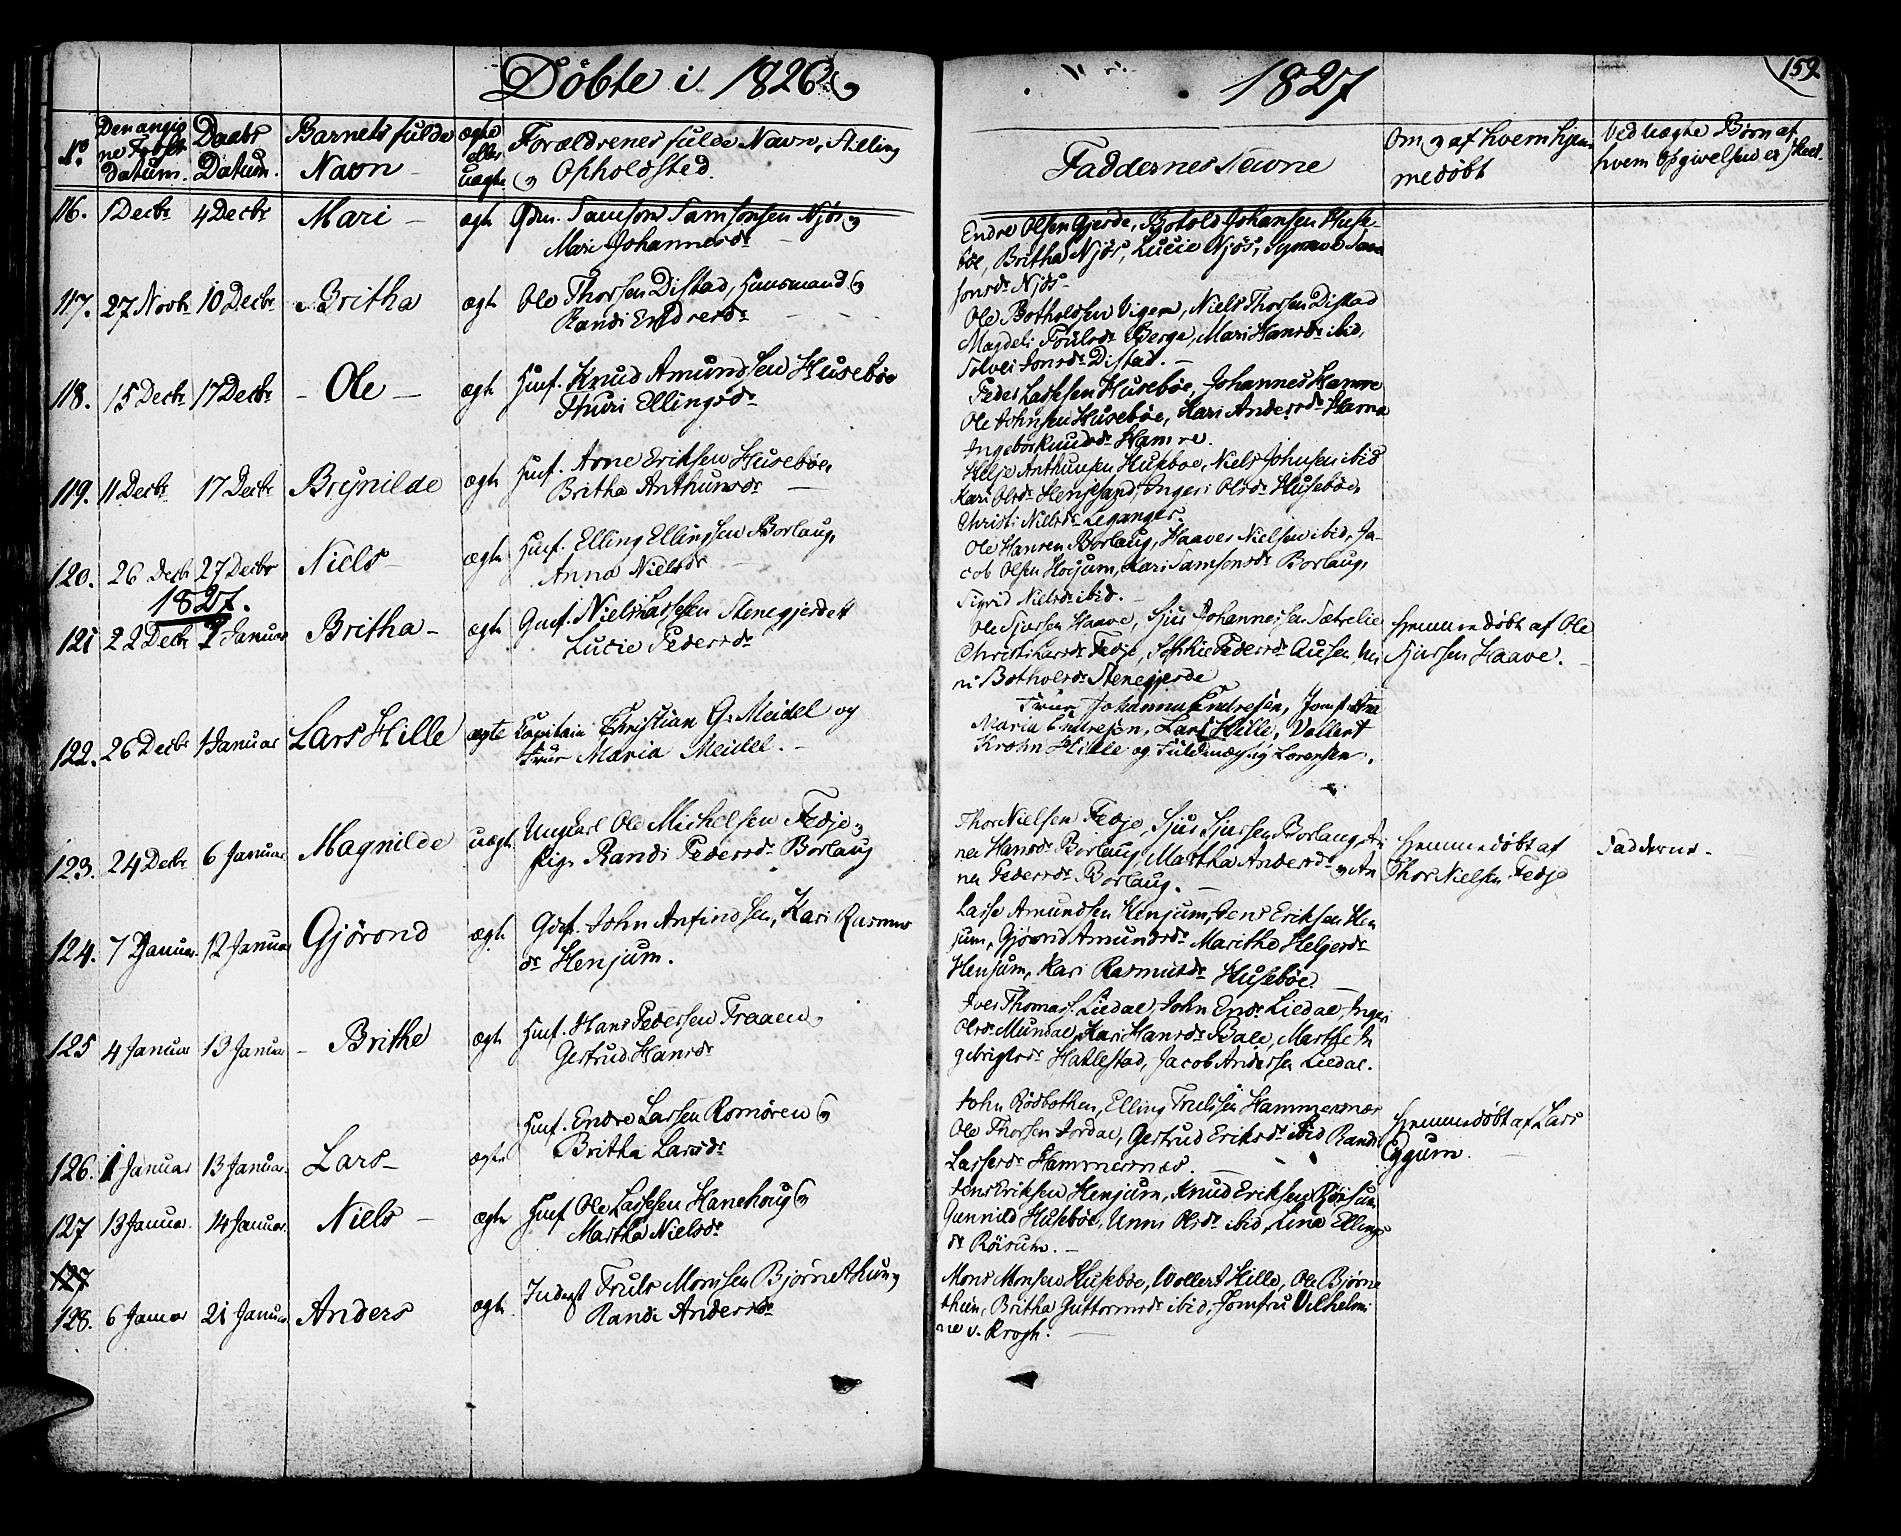 Döbte i 1826 og
1827
159
No.
Den angivne Födsels Datum.
Daabs Datum.
Barnets fulde Navn
ægte eller uægte
Forældrenes fulde Navn, Stilling og Opholdsted.
Faddernes Navne
Om og af hvem hjemmedöbt
Ved uægte Börn af hvem Opgivelsen er skeet.
116. 1 Decbr 4 Decbr Mari – ægte Gdm. Samson Samsonsen Njös og
Mari Johannesdr –
Endre Olsen Gjerde, Botold Johansen Huse-
böe, Britha Njös, Lucie Njös, Synneve Sam
sonsdr Njös.
117. 27 Novbr 10 Decbr Britha ægte Ole Thorsen Distad, Huusmand og
Randi Endresdr – –
Ole Botholdsen Vigem, Niels Thorsen Distad
Magdeli Poulsdr Berge, Mari Hansdr ibid,
Solvei Jonsdr Distad. –
118. 15 Decbr 17 Decbr – Ole – ægte Husf. Knud Amundsen Huseböe
Thuri Ellingsdr
Peder Lassesen Huseböe, Johannes Hamre
Ole Johnsen Huseböe, Kari Andersdr Hamre
Ingebor Knudsdr Hamre.
119. 11 Decbr 17 Decbr Brynilde ægte Husf. Arne Eriksen Huseböe,
Britha Anthunsdr –
Helje Anthunsen Huseboe, Niels Johnsen ibid
Kari Olsdr Henjesand, Ingeri Olsdr Huseböe,
Christi Nielsdr Leganger.
120. 26 Decbr 27 Decbr Niels – ægte Husf. Elling Ellingsen Borlaug,
Anna Nielsdr –
Ole Hansen Borlaug, Haaver Nielsen ibid, Ja-
cob Olsen Hojum, Kari Samsonsdr Borlaug,
Sigrid Nielsdr ibid. –
1827.
121 22 Decbr 7 Januar Britha – ægte Gmf. Niels Lassesen Stenegjerdet
Lucie Pedersdr
Ole Sjursen Haave, Sjur Johannessen Sætrelie
Christi Larsdr Fedje, Sophie Pedersdr Ausen, Un
ni Botholsdr Stenegjerde
Hjemmedöbt af Ole
Sjursen Haave. –
122. 26 Decbr 1 Januar Lars Hille ægte Capitain Christian G. Meidel og
Frue Maria Meidel. –
Frue Johanna Endresen, Jomf. Ane
Maria Endresen, Lars Hille, Vollert
Krohn Hille og Fuldmægtig Lorensen.
123. 24 Decbr 6 Januar Magnilde uægte Ungkarl Ole Michelsen Fedje og
Pige Randi Pedersdr Borlaug
Thor Nielsen Fedje, Sjur Sjursen Borlaug, An
na Hansdr Borlaug, Martha Andersdr og An
na Pedersdr Borlaug. –
Hjemmedöbt af
Thor Nielsen Fedje
Fadderne.
124. 7 Januar 12 Januar Gjörond ægte Gdsf. John Anfindsen, Kari Rasmus
dr Henjum.
Lasse Amundsen Henjum, Jens Eriksen Hen
jum, Gjörond Amundsdr Maritha Helgesdr
Henjum, Kari Rasmusdr Huseböe –
125 4 Januar 13 Januar – Brithe ægte Husf. Hans Pedersen Fraaen,
Gertrud Hansdr
Iver Thomas. Liedal, John Endr. Liedal, Ingeri
Olsdr Mundal, Kari Hansdr Bale, Marthe In
gebrigtsdr Hatlestad, Jacob Andersen Liedal.
126. 1 Januar 13 Januar. Lars – ægte Husf. Endre Larsen Romören og
Britha Larsdr
John Rödbothen, Elling Trulssen Hammersnæs
Ole Thorsen Jordal, Gertrud Eriksdr ibid Randi
Lassesdr Hammersnæs. –
Hjemmedöbt af Lars
Eggum
127 13 Januar. 14 Januar. Niels – ægte Husf Ole Lassesen Hanehoug og
Martha Nielsdr
Jens Eriksen Henjum, Knud Eriksen Röisum
Gunnild Huseböe, Unni Olsdr ibid, Lina Ellings
dr Röisum. –
127
128. 6 Januar 21 Januar Anders ægte Inderst Truls Monsen Björnethun og
Randi Andersdr
Mons Monsen Huseböe, Wollert Hille, Ole Björne
thun, Britha Guttormsdr ibid, Jomfru Vilhelmi
ne v. Krogh. –